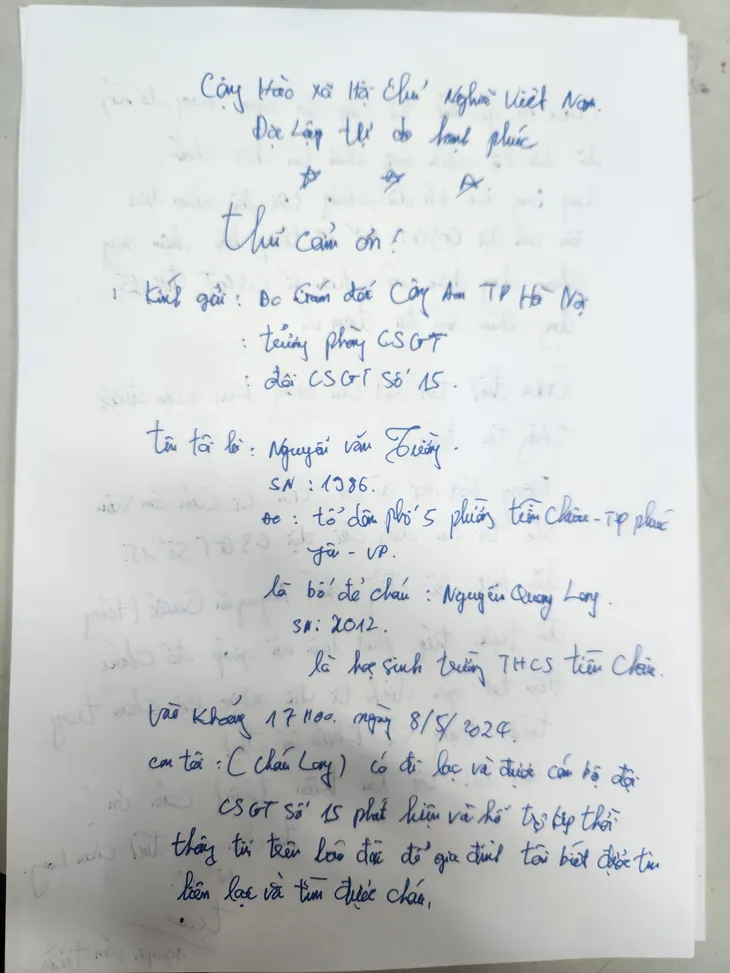 Cộng Hào xã Hội Chủ Nghĩa Việt Nam.
Độc Lập tự do hạnh phúc
Thư cảm ơn!
Kính gửi : Đc Giám đốc Công An TP Hà Nội
: trưởng phòng CSGT
: đội CSGT Số 15.
Tên tôi là : Nguyễn văn
SN : 1986.
Đc : tổ dân phố 5 phường tiền Châu - TP phúc
yên - VP.
là bố đẻ cháu : Nguyễn Quang Long.
SN: 2012.
là học sinh trường THCS tiền Châu.
vào khoảng 17H00. ngày 8/5/2024.
con tôi : (cháu Long) có đi lạc và được cán bộ đội
CSGT Số 15 phát hiện và hỗ trợ kịp thời
thông tin trên báo đài để gia đình tôi biết được tin
liên lạc và tìm được cháu.